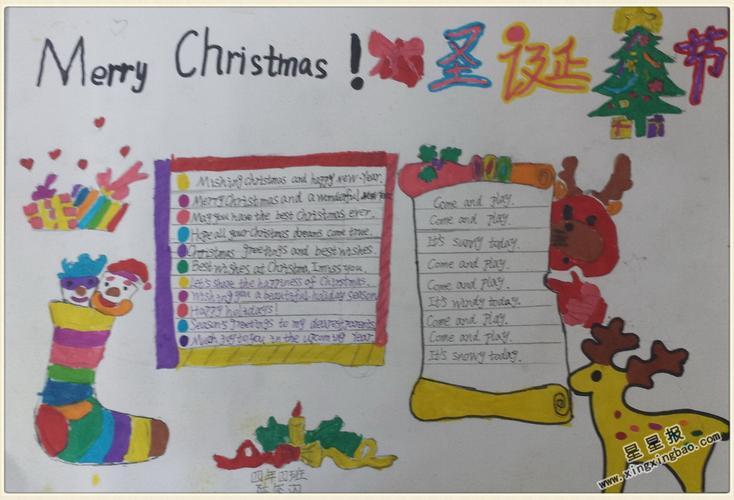 Merry Christmas! 圣诞节
Mishing Christmas and happy new-Year.
Merry Christmas and a wondeiful
May you have the best Christmas ever.
Hope all your Christmas dreams come true.
Christmas greetings and best wishes.
Best wishes at Christma, I miss you.
Let's shave the happiness of Christmas.
Wishing you a beautiful holiday season
Happy holidays!
Season's greetings to my dearest parents
Much joy to you in the upcoming Year.
Come and play.
Come and play.
It's sunny today.
Come and play.
Come and play.
It's windy today.
Come and play.
Come and play.
It's snowy today.
四年四班
星星报
www.xingxingbao.com